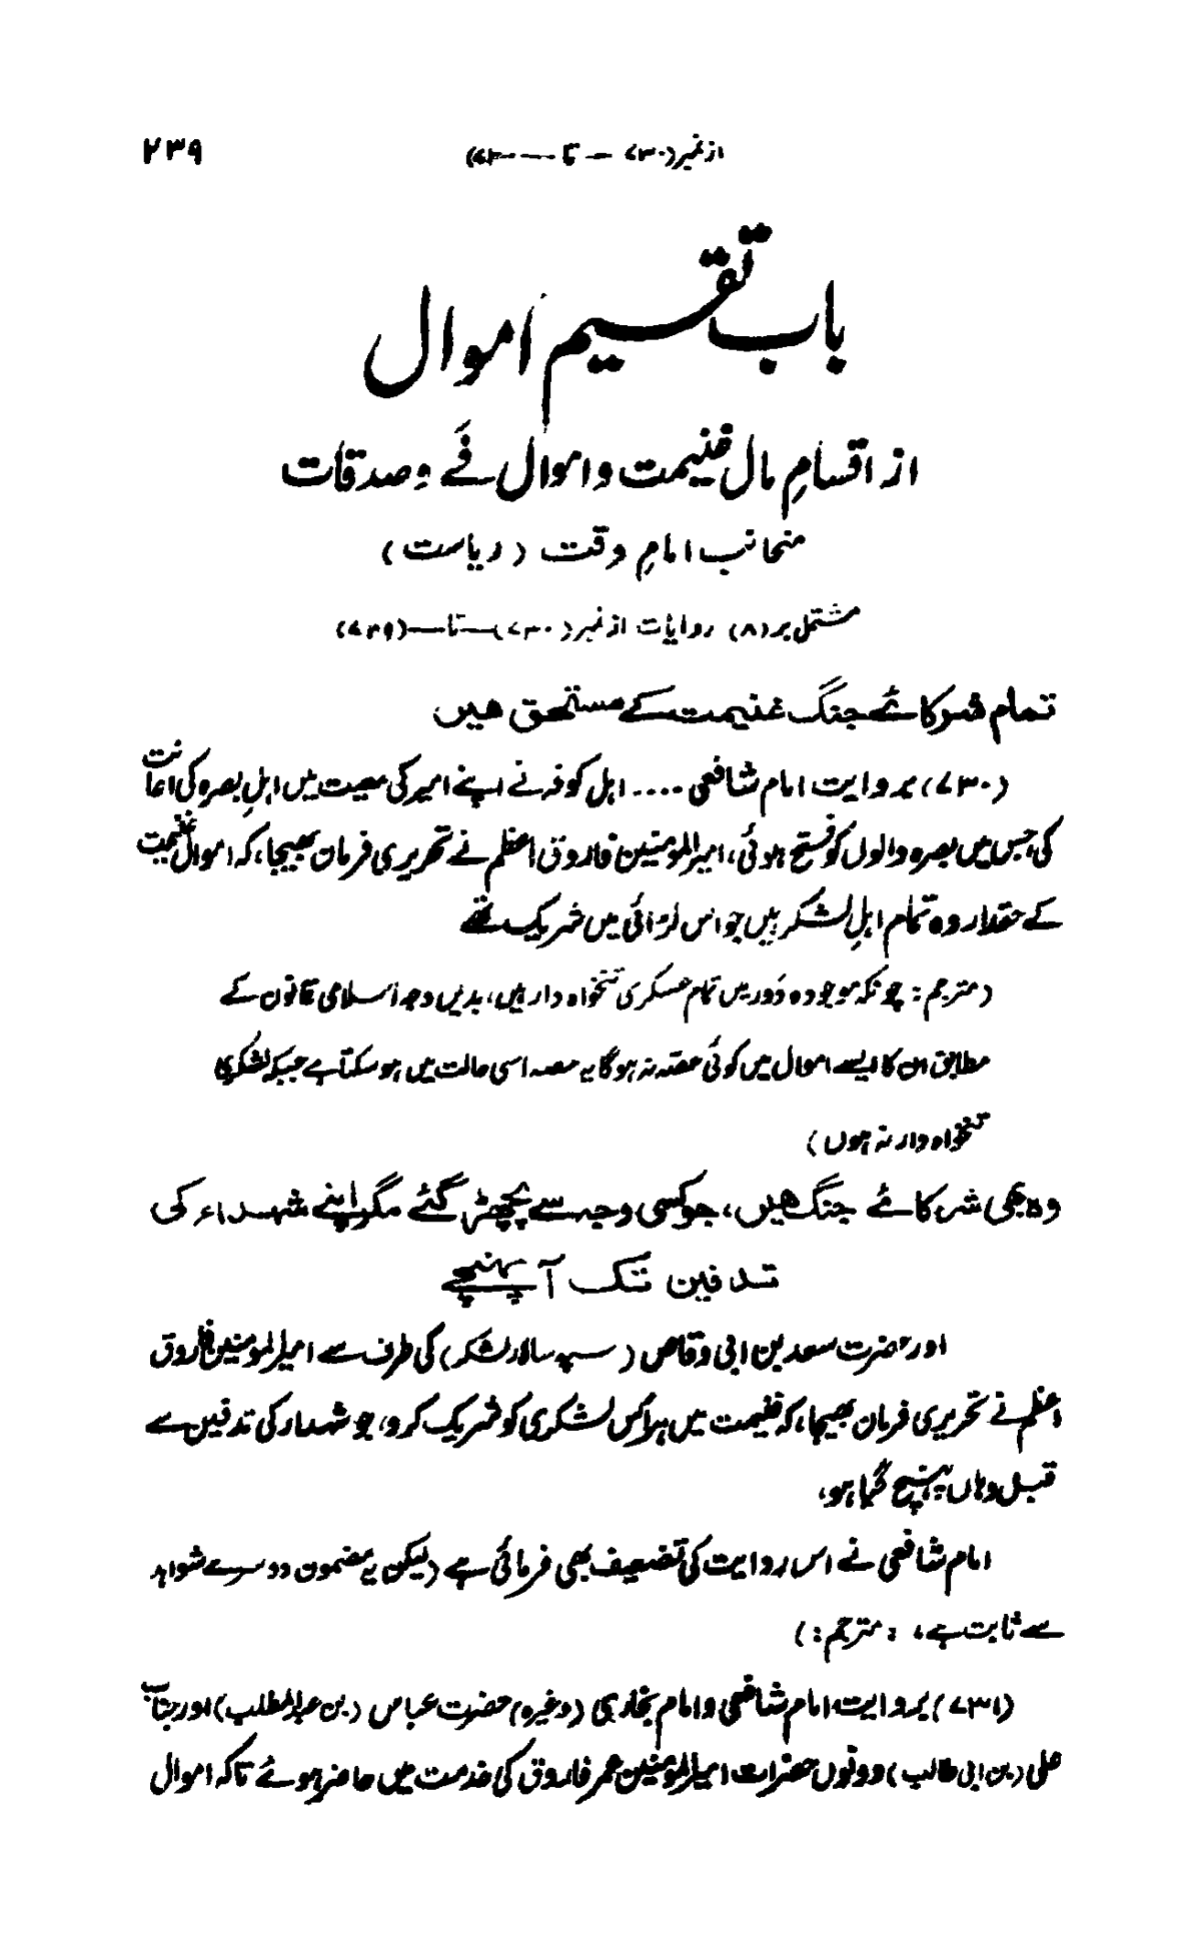 از نمبر (۷۳۰ — تا — ۷۳۰)
۲۳۹
باب تقسیم اموال
از اقسامِ مال غنیمت و اموال فَے و صدقات
منجانب امامِ وقت (ریاست)
مشتمل بر (۸) روایات از نمبر (۷۳۰) — تا — (۷۳۹)
تمام شرکائے جنگ غنیمت کے مستحق ھیں
(۷۳۰) بروایت امام شافعی .... اہل کوفہ نے اپنے امیر کی معیت میں اہلِ بصرہ کی اعانت
کی جس میں بصرہ والوں کو فتح ہوئی، امیر المؤمنین فاروق اعظم نے تحریری فرمان بھیجا، کہ اموال غنیمت
کے حقدار وہ تمام اہلِ لشکر ہیں جو اس لڑائی میں شریک تھے
(مترجم: چونکہ موجودہ دَور میں تمام عسکری تنخواہ دار ہیں، بدیں وجہ اسلامی قانون کے
مطابق ان کا ایسے اموال میں کوئی حصّہ نہ ہوگا یہ حصہ اسی حالت میں ہو سکتا ہے جبکہ لشکری
تنخواہ دار نہ ہوں)
وہ بھی شرکائے جنگ ھیں، جو کسی وجہ سے پچھڑ گئے مگر اپنے شہداء کی
تدفین تک آ پہنچے
اور حضرت سعد بن ابی وقاص (سپہ سالار لشکر) کی طرف سے امیر المؤمنین فاروق
اعظم نے تحریری فرمان بھیجا، کہ غنیمت میں ہر اس لشکری کو شریک کرو، جو شہداء کی تدفین سے
قبل وہاں پہنچ گیا ہو،
امام شافعی نے اس روایت کی تضعیف بھی فرمائی ہے (لیکن یہ مضمون دوسرے شواہد
سے ثابت ہے، : مترجم :)
(۷۳۱) بروایت امام شافعی و امام بخاری (وغیرہ) حضرت عباس (بن عبدالمطلب) اور جناب
علی (بن ابی طالب) دونوں حضرات امیر المؤمنین عمر فاروق کی خدمت میں حاضر ہوئے تاکہ اموال